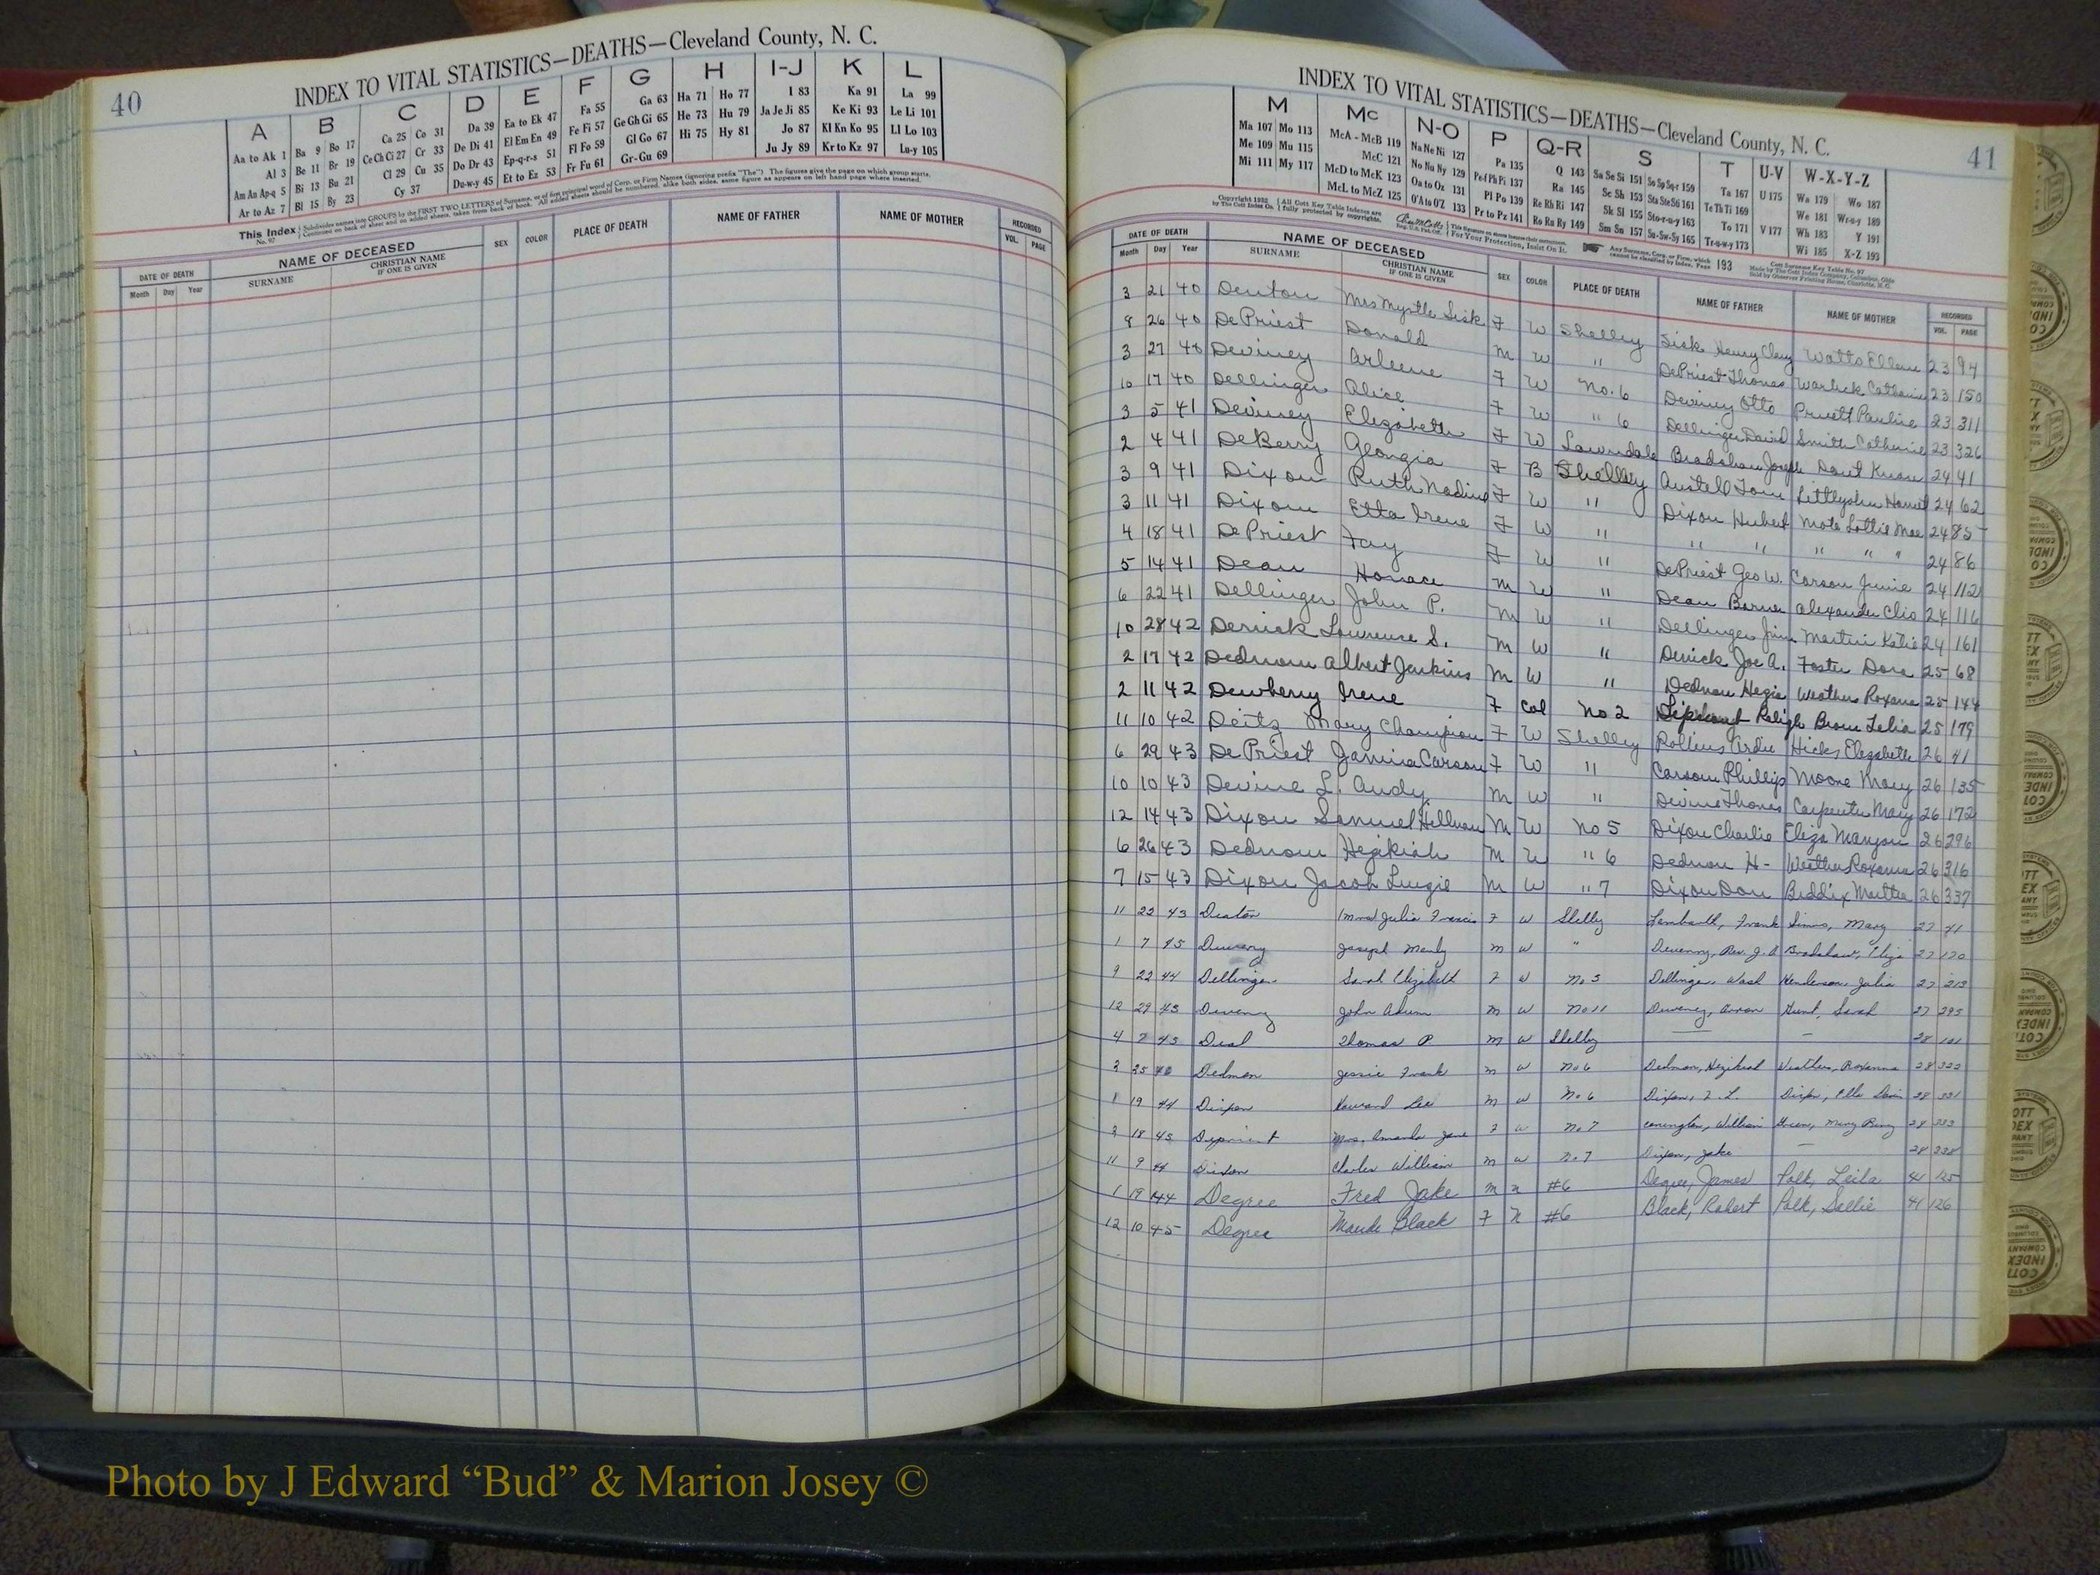 40
INDEX TO VITAL STATISTICS—DEATHS—Cleveland County, N. C.
A B C D E F G H I-J K L
Aa to Ak 1 Ba 9 Bo 17 Ca 25 Co 31 Da 39 Ea to Ek 47 Fa 55 Ga 63 Ha 71 Ho 77 I 83 Ka 91 La 99
Al 3 Be 11 Br 19 Ce Ch Ci 27 Cr 33 De Di 41 El Em En 49 Fe Fi 57 Ge Gh Gi 65 He 73 Hu 79 Ja Je Ji 85 Ke Ki 93 Le Li 101
Am An Ap-q 5 Bi 13 Bu 21 Cl 29 Cu 35 Do Dr 43 Ep-q-r-s 51 Fl Fo 59 Gl Go 67 Hi 75 Hy 81 Jo 87 Kl Kn Ko 95 Ll Lo 103
Ar to Az 7 Bl 15 By 23 Cy 37 Du-w-y 45 Et to Ez 53 Fr Fu 61 Gr-Gu 69 Ju Jy 89 Kr to Kz 97 Lu-y 105
This Index No. 97 Subdivides names into GROUPS by the FIRST TWO LETTERS of Surname, or of first principal word of Corp. or Firm Names (ignoring prefix "The") The figures give the page on which group starts.
Continued on back of sheet and on added sheets, taken from back of book. All added sheets should be numbered, alike both sides, same figure as appears on left hand page where inserted.
DATE OF DEATH NAME OF DECEASED SEX COLOR PLACE OF DEATH NAME OF FATHER NAME OF MOTHER RECORDED
Month Day Year SURNAME CHRISTIAN NAME IF ONE IS GIVEN VOL. PAGE
INDEX TO VITAL STATISTICS—DEATHS—Cleveland County, N. C.
41
M Mc N-O P Q-R S T U-V W-X-Y-Z
Ma 107 Mo 113 McA - McB 119 Na Ne Ni 127 Pa 135 Q 143 Sa Se Si 151 So Sp Sq-r 159 Ta 167 U 175 Wa 179 Wo 187
Me 109 Mu 115 McC 121 No Nu Ny 129 Pe-f Ph Pi 137 Ra 145 Sc Sh 153 Sta Ste Sti 161 Te Th Ti 169 We 181 Wr-u-y 189
Mi 111 My 117 McD to McK 123 Oa to Oz 131 Pl Po 139 Re Rh Ri 147 Sk Sl 155 Sto-r-u-y 163 To 171 V 177 Wh 183 Y 191
McL to McZ 125 O'A to O'Z 133 Pr to Pz 141 Ro Ru Ry 149 Sm Sn 157 Su-Sw-Sy 165 Tr-u-w-y 173 Wi 185 X-Z 193
Copyright 1932 by The Cott Index Co. All Cott Key Table Indexes are fully protected by copyrights. For Your Protection, Insist On It. Any Surname, Corp. or Firm, which cannot be classified by Index, Page 193 Cott Surname Key Table No. 97 Made by The Cott Index Company, Columbus, Ohio Sold by Observer Printing House, Charlotte, N. C.
DATE OF DEATH NAME OF DECEASED SEX COLOR PLACE OF DEATH NAME OF FATHER NAME OF MOTHER RECORDED
Month Day Year SURNAME CHRISTIAN NAME IF ONE IS GIVEN VOL. PAGE
3 21 40 Denton Mrs Myrtle Sisk F W Shelby Sisk Henry Clay Watts Ellen 23 94
8 26 40 DePriest Donald M W " DePriest Thomas Warlick Catharine 23 150
3 27 40 Deviney Arleene F W No. 6 Deviney Otto Pruett Pauline 23 311
10 17 40 Dellinger Alice F W " 6 Dellinger David Smith Catherine 23 326
3 5 41 Deviney Elizabeth F W Lawndale Bradshaw Joseph 24 41
2 4 41 DeBerry Georgia F B Shelby Austell Tom 24 62
3 9 41 Dixon Ruth Nadine F W " Dixon Hubert Mote Lottie Mae 24 85
3 11 41 Dixon Etta Irene F W " " " " " " 24 86
4 18 41 DePriest Fay F W " DePriest Geo W. Carson Junie 24 112
5 14 41 Dean Horace M W " Dean Alexander Clio 24 116
6 22 41 Dellinger John P. M W " Dellinger Jim Martin Katie 24 161
10 28 42 Derrick Lawrence S. M W " Derrick Joe A. Foster Dora 25 68
2 17 42 Dedmon Albert Jenkins M W " Dedmon Hezia Weathers Roxana 25 144
2 11 42 Dewberry Irene F Col No 2 Raligh Brown Lelia 25 179
11 10 42 Deitz Mary Champion F W Shelby Rollins Ardie Hicks Elizabeth 26 41
6 29 43 DePriest Jamina Carson F W " Carson Phillip Moore Mary 26 135
10 10 43 Devine L. Andy M W " Devine Thomas Carpenter Mary 26 172
12 14 43 Dixon Samuel Hillman M W No 5 Dixon Charlie Eliza Mangon 26 296
6 26 43 Dedmon Hezikiah M W " 6 Dedmon H- Weathers Roxanna 26 316
7 15 43 Dixon Jacob Luzie M W " 7 Dixon Don Beddix Martha 26 337
11 22 43 Deaton (Mrs) Julia Francis F W Shelby Lambeth, Frank Simms, Mary 27 41
1 7 45 Devenny Joseph Manly M W " Devenny, Rev. J. A Bradshaw, Eliza 27 120
9 22 44 Dellinger Sarah Elizabeth F W No 3 Dellinger, Wash Henderson, Julia 27 213
12 29 43 Diveny John Adam M W No 11 Diveney, Aaron Hunt, Sarah 27 295
4 2 45 Deal Thomas P M W Shelby — — 28 101
3 25 40 Dedmon Jessie Frank M W No 6 Dedmon, Hezikiah Weathers, Roxanna 28 322
1 19 44 Dixon Howard Lee M W No 6 Dixon, Dixon, 28 331
3 18 45 Depriest Mrs. Amanda Jane F W No 7 Covington, William Green, Mary 28 333
11 9 44 Dixon Charles William M W No 7 Dixon, Jake — 28 338
1 19 44 Degree Fred Jake M N #6 Degree, James Polk, Leila 41 125
12 10 45 Degree Maude Black F N #6 Black, Robert Polk, Sallie 41 126
Photo by J Edward “Bud” & Marion Josey ©